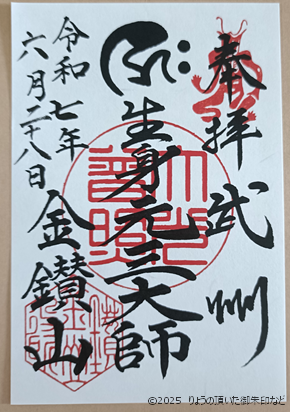 奉拝 武州
生身元三大師
令和七年
六月二十八日
金鑚山
©2025 りょうの頂いた御朱印など